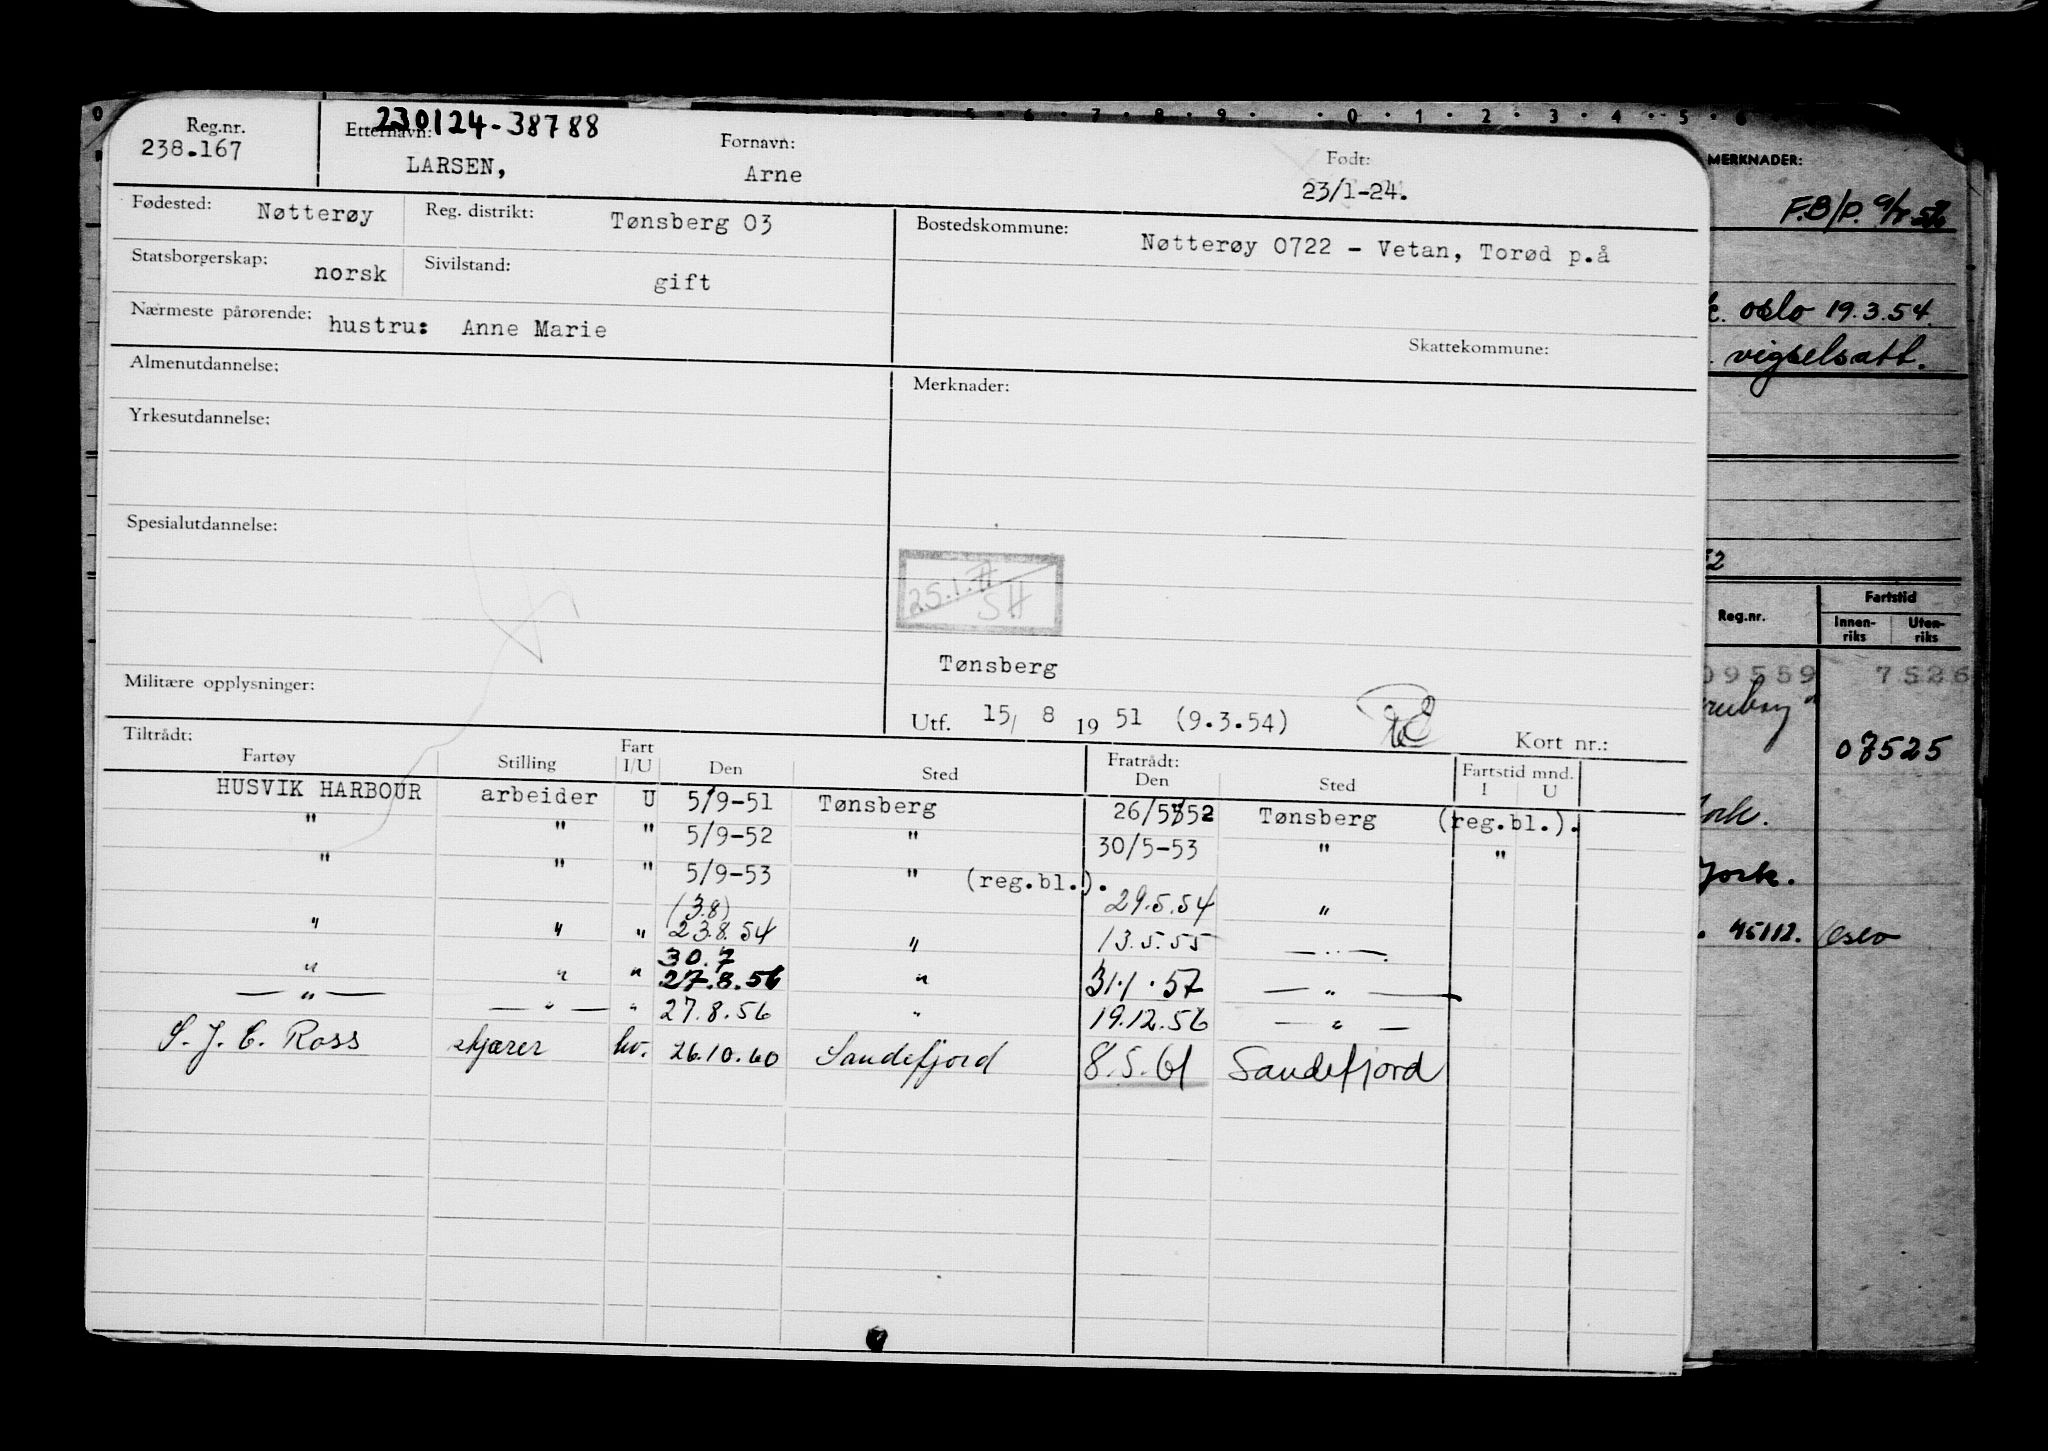 230124-38788
Reg.nr. Etternavn: Fornavn: Født:
238.167 LARSEN, Arne 23/1-24.
Fødested: Nøtterøy Reg. distrikt: Tønsberg 03 Bostedskommune: Nøtterøy 0722 - Vetan, Torød p.å
Statsborgerskap: norsk Sivilstand: gift
Nærmeste pårørende: hustru: Anne Marie Skattekommune:
Almenutdannelse: Merknader:
Yrkesutdannelse:
Spesialutdannelse:
25.1.
SH
Tønsberg
Militære opplysninger: Utf. 15/ 8 19 51 (9.3.54) Kort nr.:
Tiltrådt: Fratrådt:
Fartøy Stilling Fart I/U Den Sted Den Sted Fartstid mnd. I U
HUSVIK HARBOUR arbeider U 5/9-51 Tønsberg 26/5-52 Tønsberg (reg.bl.).
" " " 5/9-52 " 30/5-53 " "
" " " 5/9-53 " (reg.bl.).
(3.8) 29.5.54 "
" " " 23.8.54 " 13.5.55 — " —
30.7
" " " 27.8.56 " 31.1.57 — " —
— " — — " — " 27.8.56 " 19.12.56 — " —
S. J. C. Ross skjærer hv. 26.10.60 Sandefjord 8.5.61 Sandefjord
MERKNADER:
F.B/P.
oslo 19.3.54.
vigselsatt.
Reg.nr. Fartstid
Innen-riks Uten-riks
09559 7526
07525
York.
York.
45112. Oslo